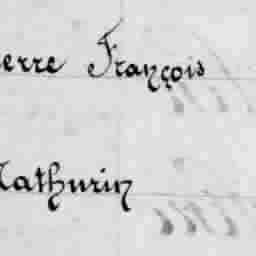 erre François
athurin